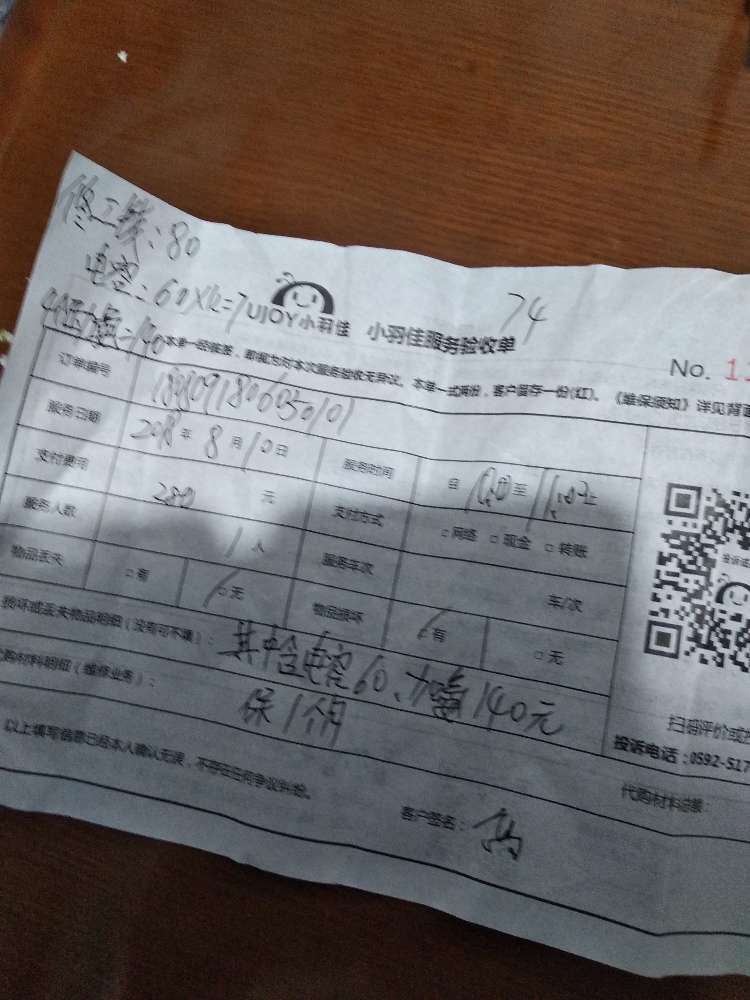 修工费：80
电容：60 74
加氟=140
UJOY小羽佳 小羽佳服务验收单
No. 11
本单一经核签，即视为对本次服务验收无异议。本单一式两份，客户留存一份(红)。《维保须知》详见背面
订单编号
服务日期 2018年8月10日 服务时间 自 至
支付费用 280 元 支付方式 □网络 □现金 □转账
服务人数 1人 服务车次 车/次
物品丢失 □有 □无 物品损坏 □有 □无
损坏或丢失物品明细（没有可不填）： 其中含电容60、加氟140元
代购材料明细（维修业务）： 保1个月
以上填写信息已经本人确认无误，不存在任何争议纠纷。
客户签名：
扫码评价或投
投诉电话：0592-517
代购材料金额：